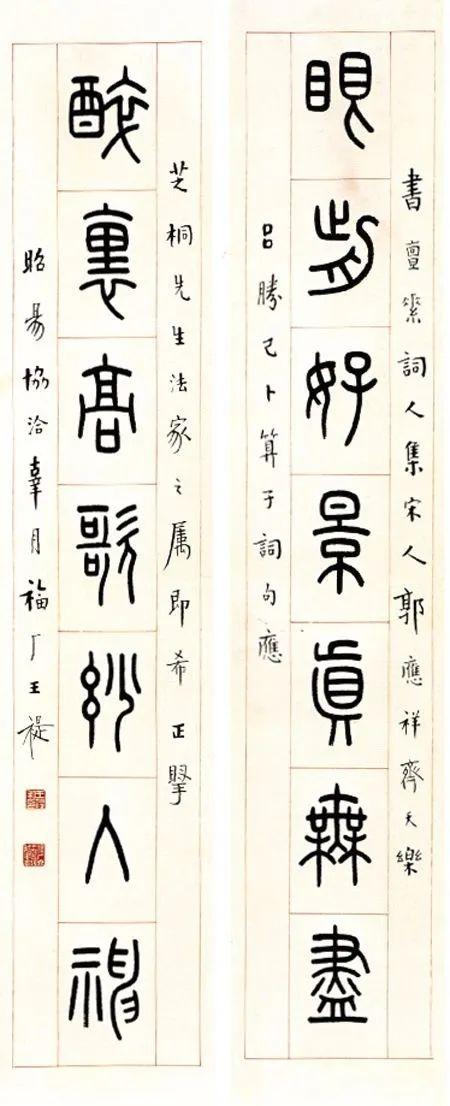 書亶絫詞人集宋人郭應祥齊天樂
眼前好景真無盡
呂勝己卜算子詞句應
芝桐先生法家之属即希正掔
醉裏高歌玅入神
昭昜協洽辜月福厂王禔